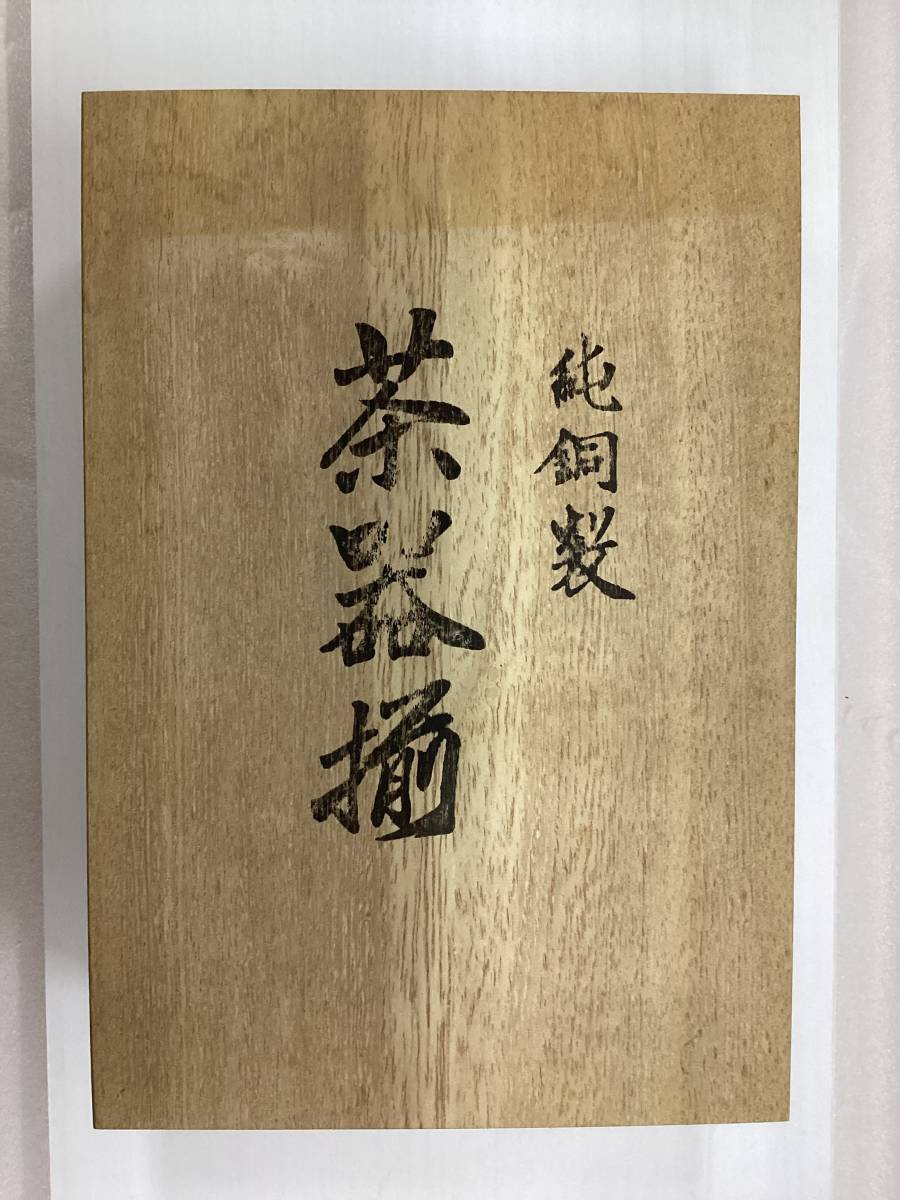 純銅製
茶器揃